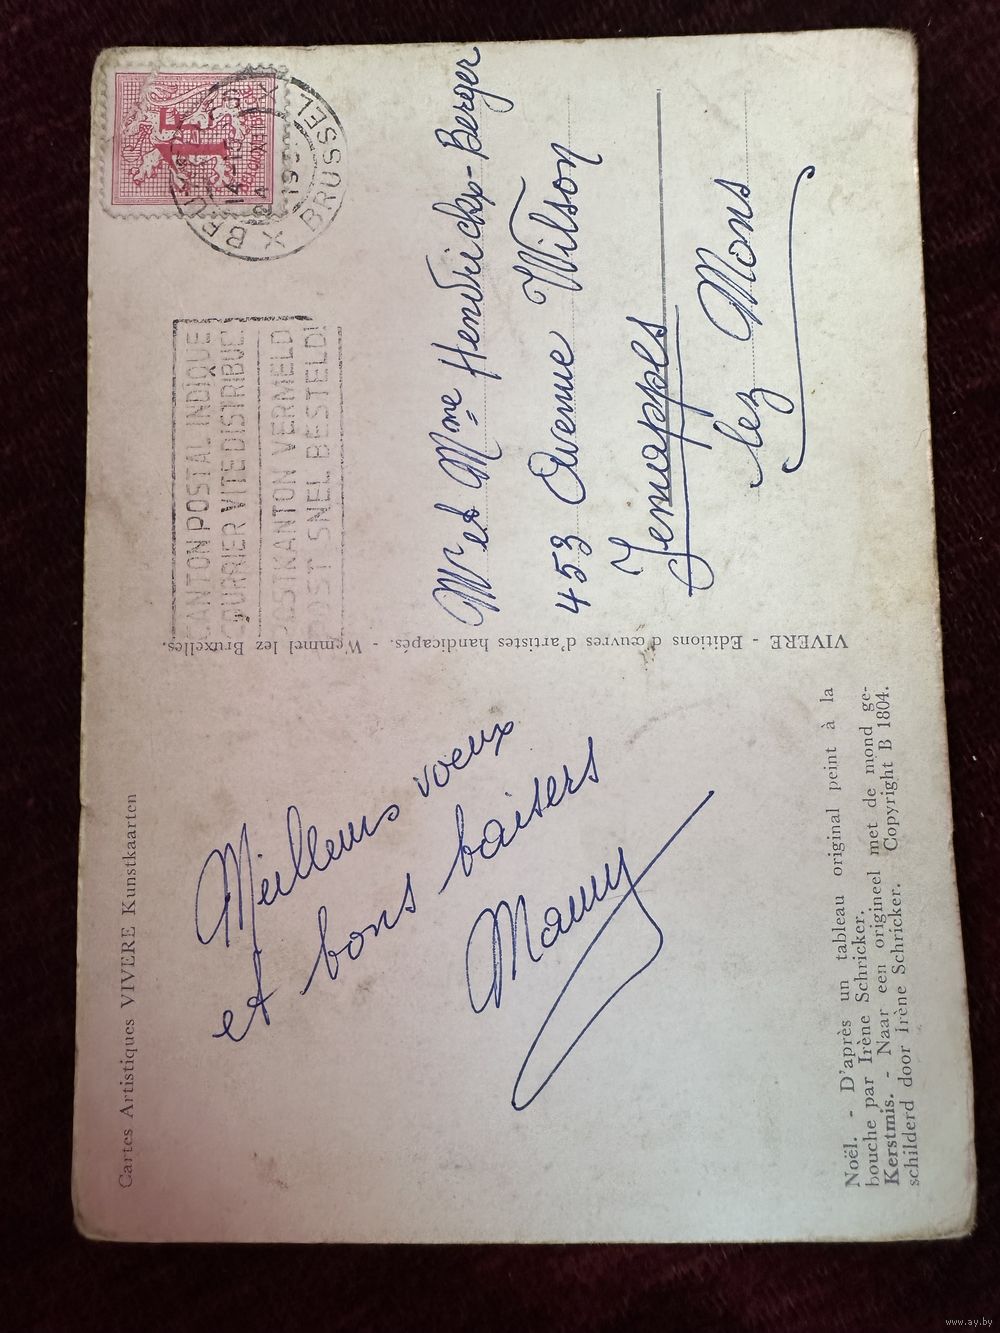 Cartes Artistiques VIVERE Kunstkaarten
Meilleurs voeux
et bons baisers
Noël. - D'après un tableau original peint à la
bouche par Irène Schricker.
Kerstmis. - Naar een origineel met de mond ge-
schilderd door Irène Schricker. Copyright B 1804.
VIVERE - Editions d'œuvres d'artistes handicapés. - Wemmel lez Bruxelles.
1F
BRUSSEL X
CANTON POSTAL INDIQUE
COURRIER VITE DISTRIBUE!
POSTKANTON VERMELD
POST SNEL BESTELD!
Mr et Mme Hendrickx-Berger
453 Avenue Wilson
Jemappes
lez Mons
www.ay.by